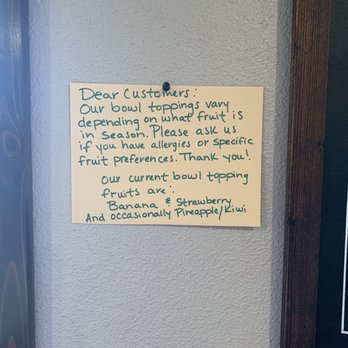 Dear Customers:
Our bowl toppings vary
depending on what fruit is
in season. Please ask us
if you have allergies or specific
fruit preferences. Thank you!
Our current bowl topping
fruits are:
Banana & Strawberry
And occasionally Pineapple/Kiwi